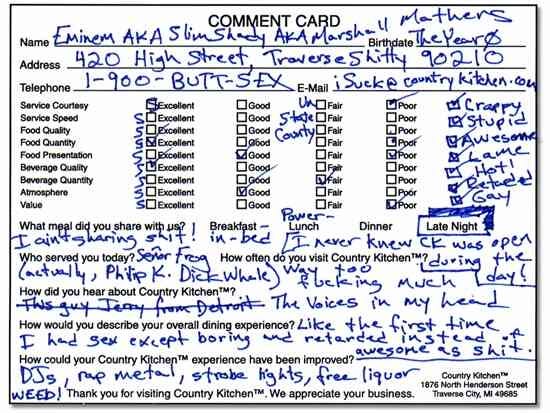 COMMENT CARD
Name Eminem AKA Slim Shady AKA Marshall Mathers Birthdate The Year 0
Address 420 High Street, Traverse Shitty 90210
Telephone 1-900-BUTT-SEX E-Mail iSuck@countrykitchen.com
Service Courtesy S Excellent Good Un Fair Poor Crappy
Service Speed S Excellent Good State Fair Poor Stupid
Food Quality S Excellent Good County Fair Poor Awesome
Food Quantity S Excellent Good Fair Poor Lame
Food Presentation S Excellent Good Fair Poor Hot!
Beverage Quality S Excellent Good Fair Poor Retarded
Beverage Quantity S Excellent Good Fair Poor Gay
Atmosphere S Excellent Good Fair Poor
Value S Excellent Good Fair Poor
What meal did you share with us? ! Breakfast - in-bed Power- Lunch Dinner Late Night
I ain't sharing shit! I never knew CK was open during the day!
Who served you today? Señor Frog How often do you visit Country Kitchen™? Way too fucking much
(actually, Philip K. Dick Whale)
How did you hear about Country Kitchen™?
This guy Jerry from Detroit The Voices in my head
How would you describe your overall dining experience? Like the first time
I had sex except boring and retarded instead of awesome as shit.
How could your Country Kitchen™ experience have been improved?
DJs, rap metal, strobe lights, free liquor
WEED! Thank you for visiting Country Kitchen™. We appreciate your business.
Country Kitchen™
1876 North Henderson Street
Traverse City, MI 49685